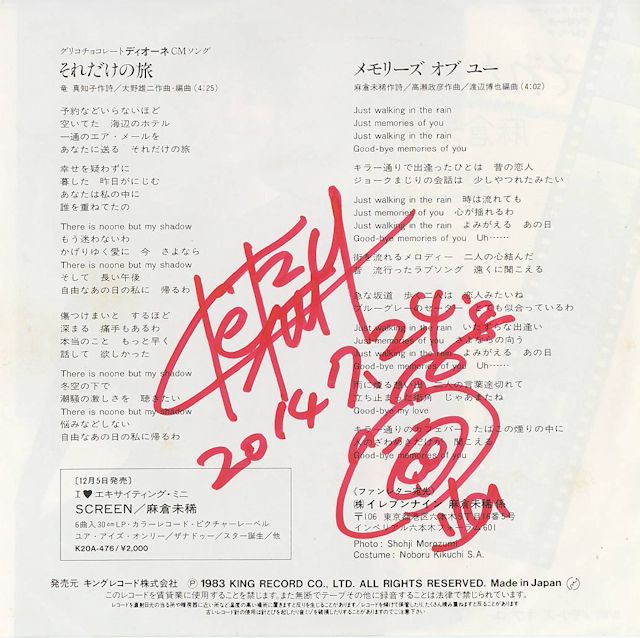 グリコチョコレートディオーネCMソング
それだけの旅
竜 真知子作詩／大野雄二作曲・編曲(4:25)
予約などいらないほど
空いてた 海辺のホテル
一通のエア・メールを
あなたに送る それだけの旅
幸せを疑わずに
暮した 昨日がにじむ
あなたは私の中に
誰を重ねてたの
There is noone but my shadow
もう迷わないわ
かげりゆく愛に 今 さよなら
There is noone but my shadow
そして 長い午後
自由なあの日の私に 帰るわ
傷つけまいと するほど
深まる 痛手もあるわ
本当のこと もっと早く
話して 欲しかった
There is noone but my shadow
冬空の下で
潮騒の激しさを 聴きたい
There is noone but my shadow
悩みなどしない
自由なあの日の私に 帰るわ
[12月5日発売]
I♥エキサイティング・ミニ
SCREEN／麻倉未稀
6曲入30㎝LP・カラーレコード・ピクチャーレーベル
ユア・アイズ・オンリー／ザナドゥー／スター誕生／他
K20A-476／¥2,000
メモリーズ オブ ユー
麻倉未稀作詩／高瀬政彦作曲／渡辺博也編曲(4:02)
Just walking in the rain
Just memories of you
Just walking in the rain
Good-bye memories of you
キラー通りで出逢ったひとは 昔の恋人
ジョークまじりの会話は 少しやつれたみたい
Just walking in the rain 時は流れても
Just memories of you 心が揺れるわ
Just walking in the rain よみがえる あの日
Good-bye memories of you Uh……
街を流れるメロディー 二人の心結んだ
昔 流行ったラブソング 遠くに聞こえる
急な坂道 歩く二人は 恋人みたいね
ブルーグレーのセーター とても似合っているわ
Just walking in the rain いたずらな出逢い
Just memories of you さよならの向う
Just walking in the rain よみがえる あの日
Good-bye memories of you Uh……
雨に煙る想い出 二人の言葉途切れて
立ち止まった街角 じゃあまたね
Good-bye my love
キラー通りのカフェバー たばこの煙の中に
人のざわめきだけが 聞こえる
Good-bye memories of you
2014
〈ファンレター宛先〉
㈱イレブンナイン 麻倉未稀係
〒106 東京都港区六本木5
インペリアル六本木フォーラム601
Photo : Shohji Morozumi
Costume : Noboru Kikuchi S.A.
発売元 キングレコード株式会社 Ⓟ 1983 KING RECORD CO., LTD. ALL RIGHTS RESERVED. Made in Japan
このレコードを賃貸業に使用することを禁じます。また無断でテープその他に録音することは法律で禁じられています。